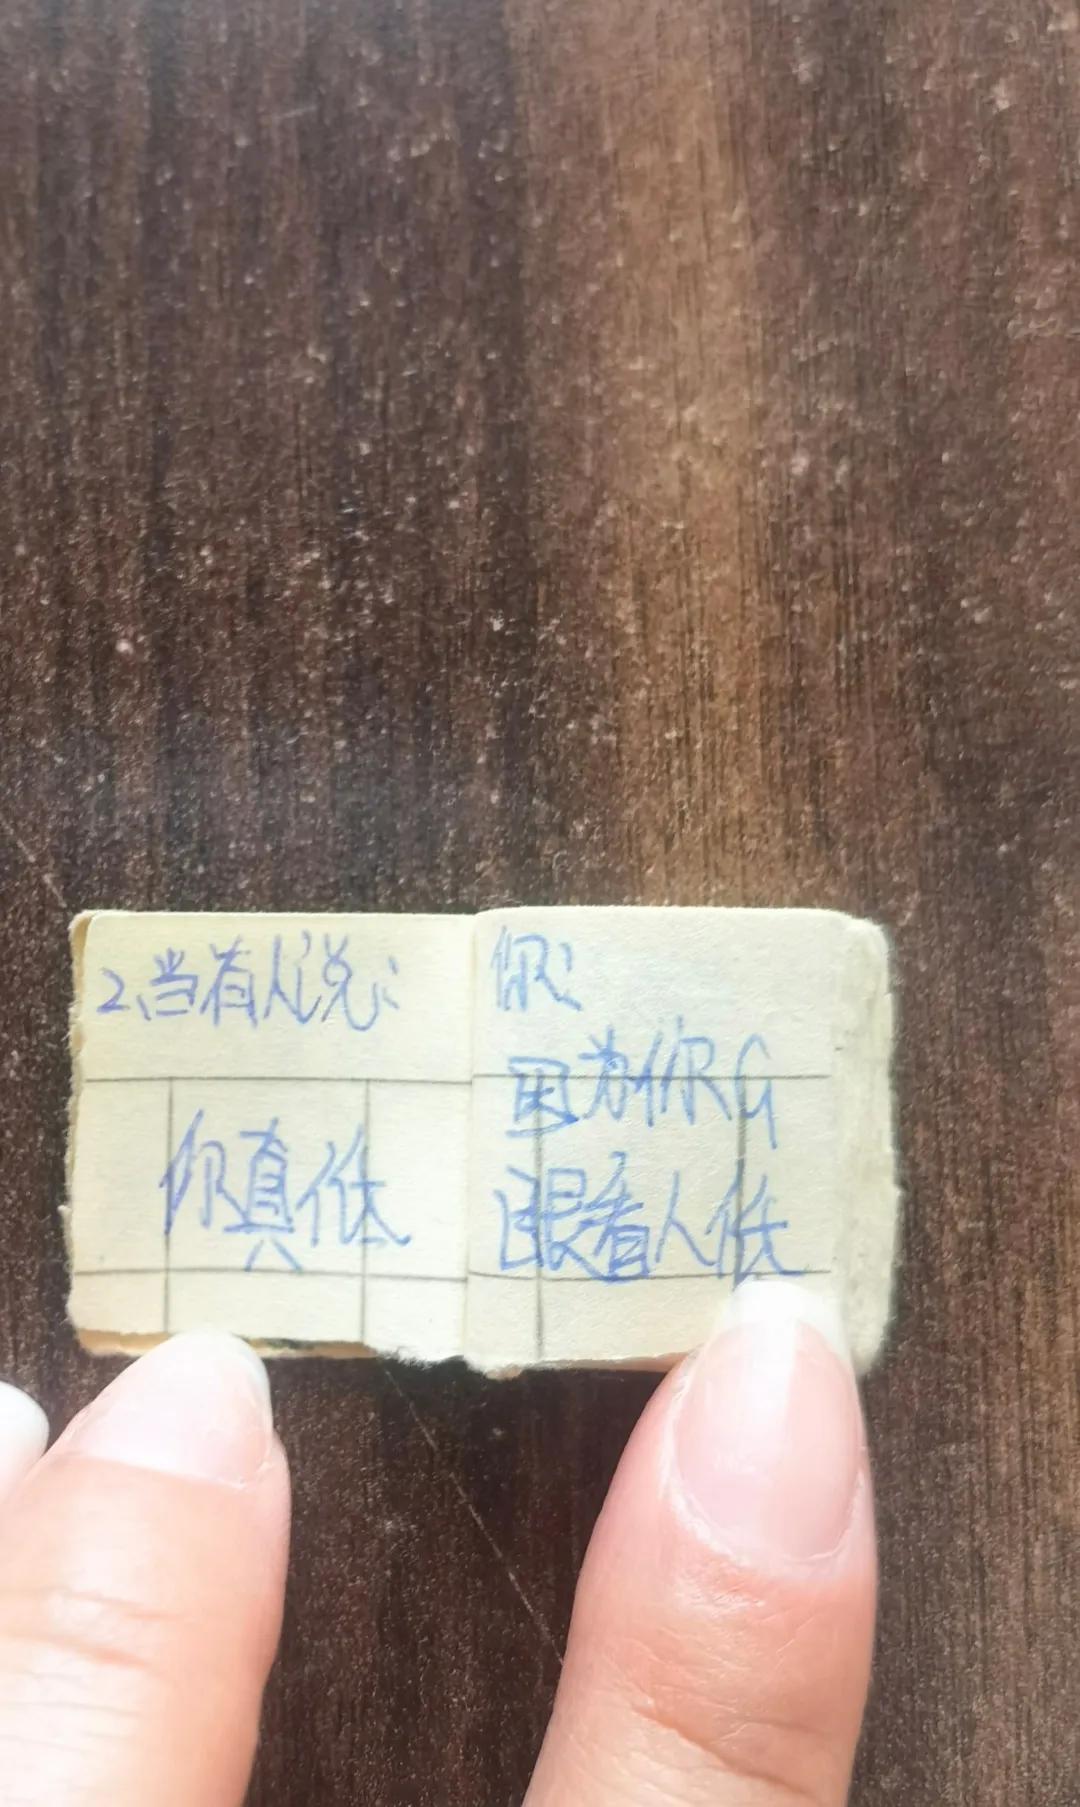 2、当有人说:
你真低
你:
因为你G
眼看人低